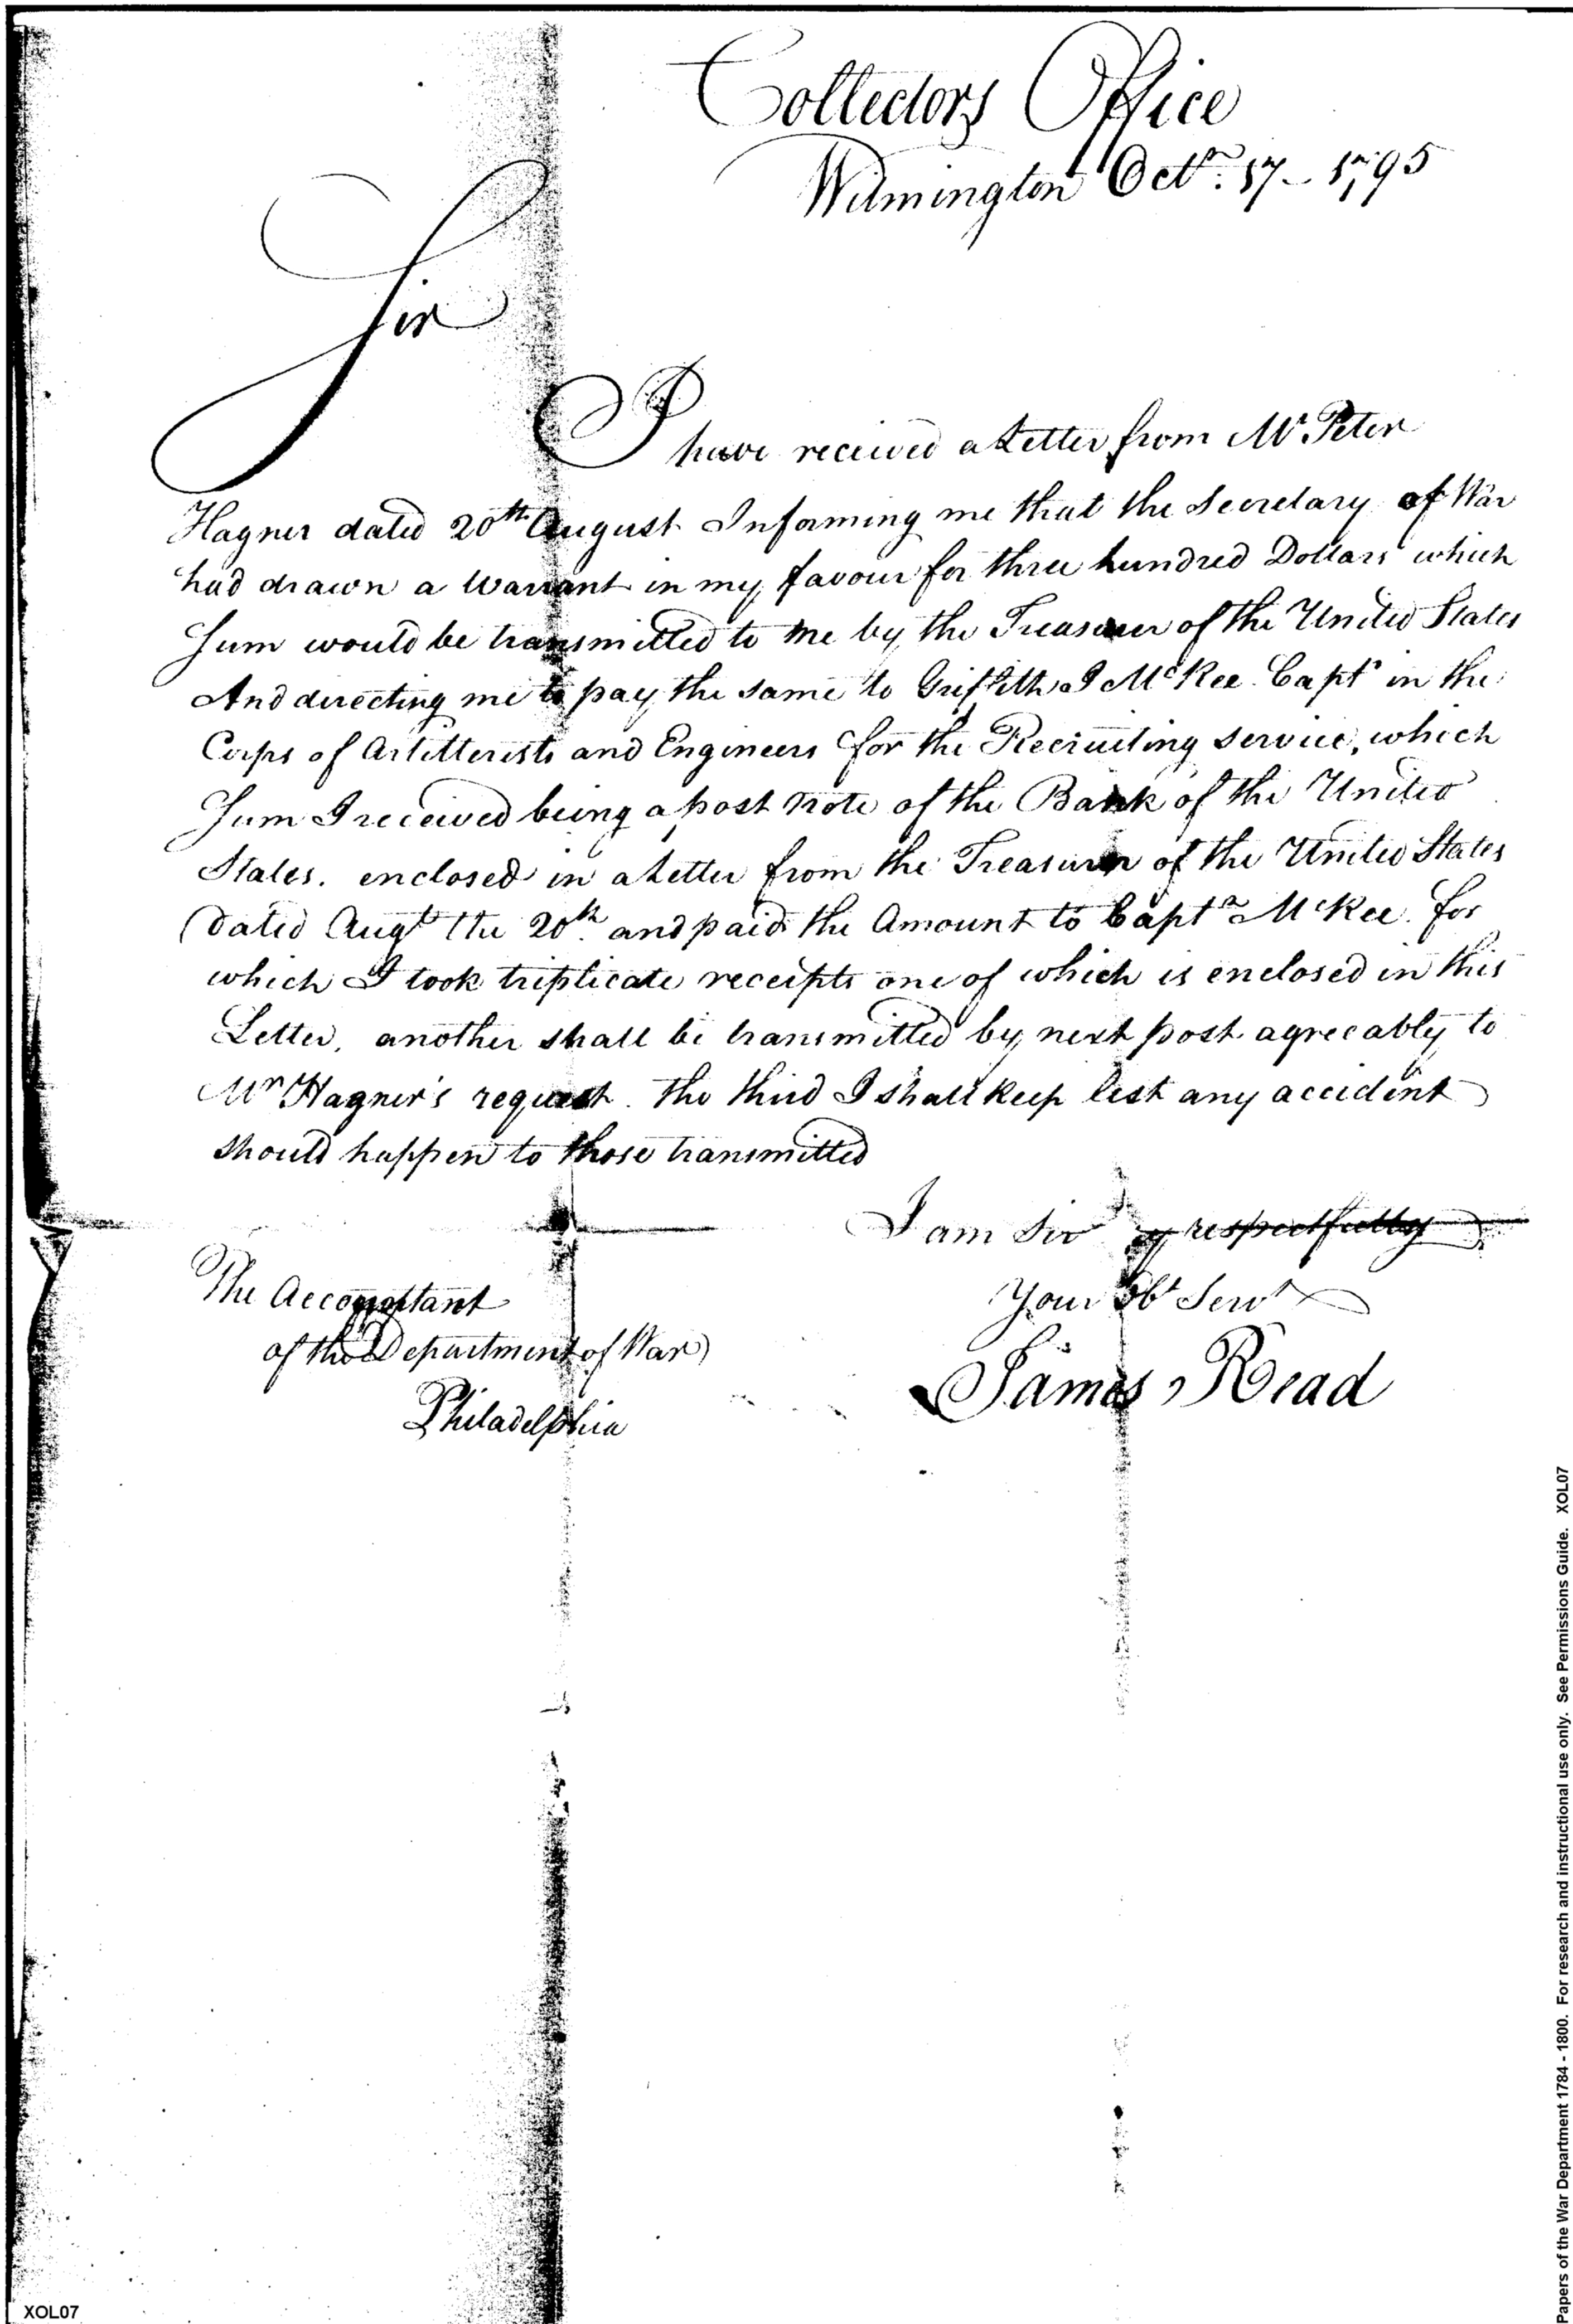 Collectors Office
Wilmington Octr. 17 - 1795
Sir
I have received a Letter from Mr Peter
Hagner dated 20th August Informing me that the Secretary of War
had drawn a Warrant in my favour for three hundred Dollars which
Sum would be transmitted to me by the Treasurer of the United States
And directing me to pay the same to Griffith J McKee Captn in the
Corps of Artillerists and Engineers for the Recruiting service, which
Sum I received being a post note of the Bank of the United
States. enclosed in a Letter from the Treasurer of the United States
dated Augt the 20th. and paid the Amount to Captn McKee. for
which I took triplicate receipts one of which is enclosed in this
Letter, another shall be transmitted by next post agreeably to
Mr Hagner's request. the third I shall keep lest any accident
should happen to those transmitted
I am Sir respectfully
Your Obt Servt
James Read
The Accomptant
of the Department of War
Philadelphia
Papers of the War Department 1784 - 1800. For research and instructional use only. See Permissions Guide. XOL07
XOL07